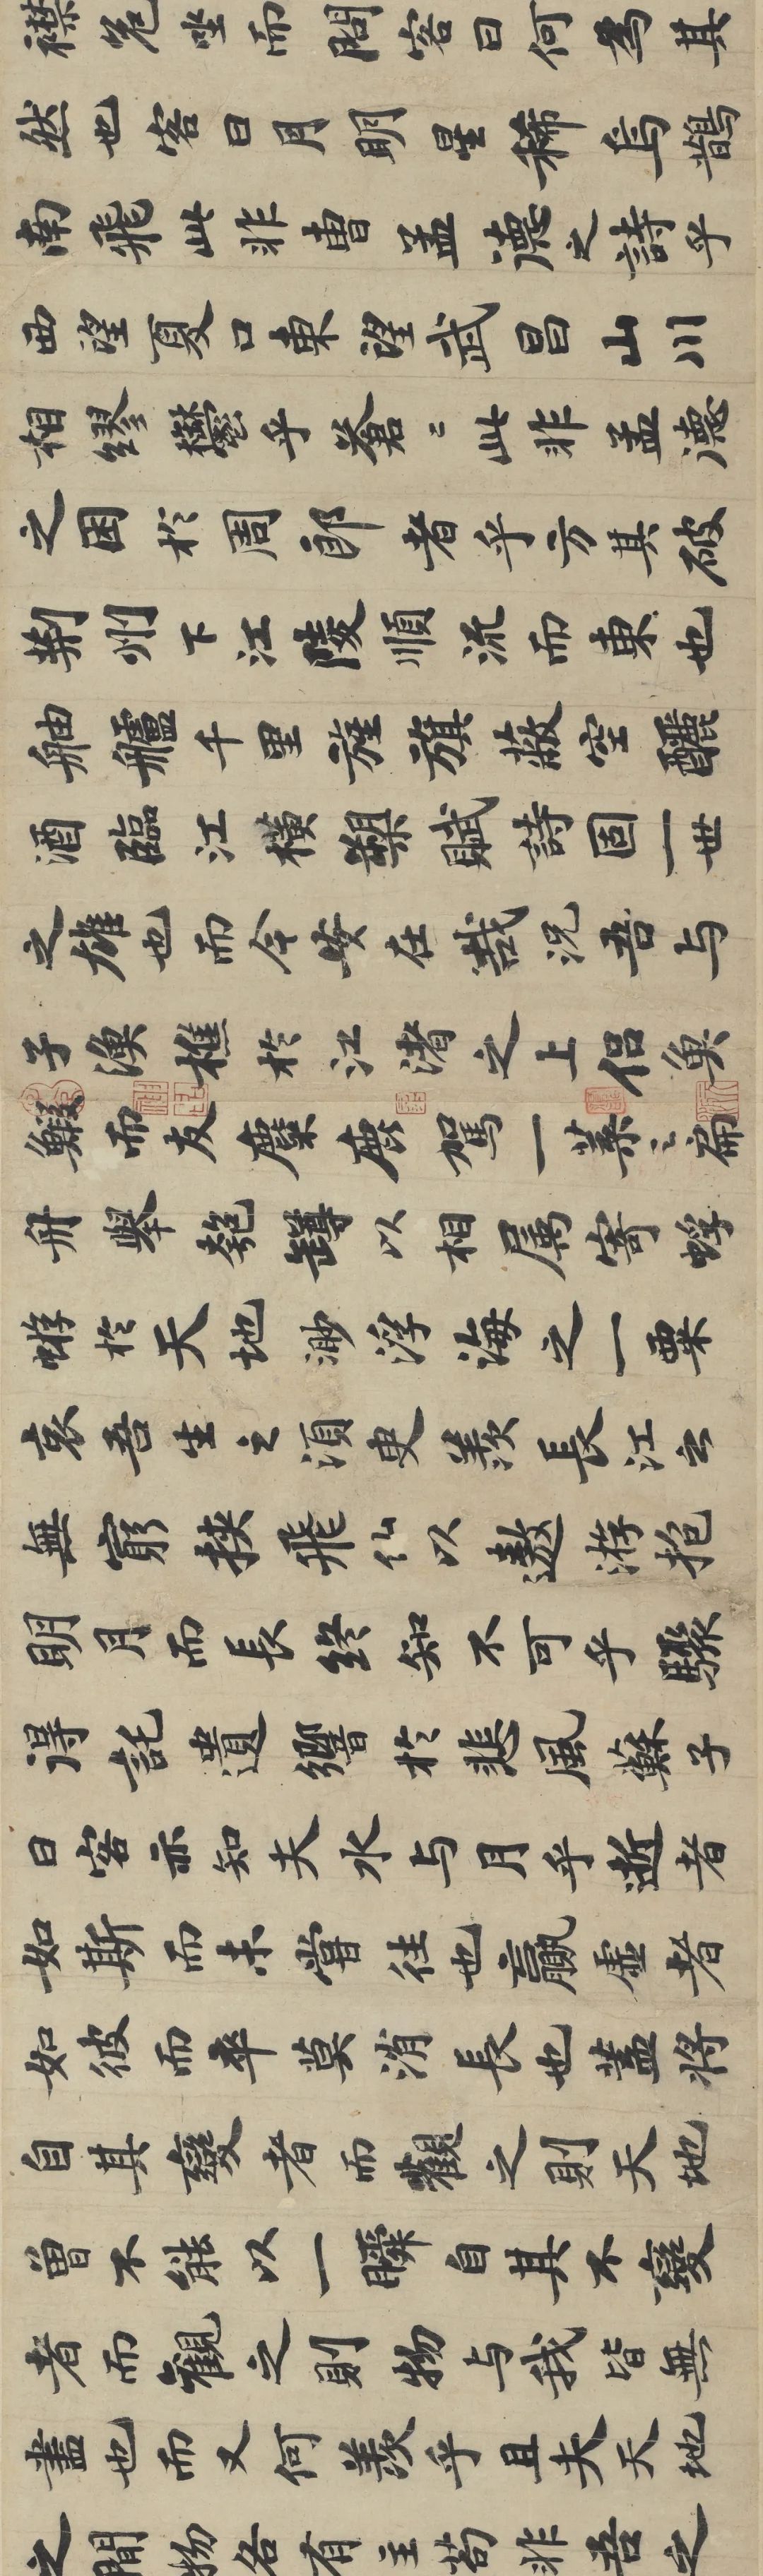 襟危坐而問客曰何為其
然也客曰月明星稀烏鵲
南飛此非曹孟德之詩乎
西望夏口東望武昌山川
相繆鬱乎蒼〻此非孟德
之困於周郎者乎方其破
荊州下江陵順流而東也
舳艫千里旌旗蔽空釃
酒臨江橫槊賦詩固一世
之雄也而今安在哉況吾与
子漁樵於江渚之上侶魚
鰕而友麋鹿駕一葉之扁
舟舉匏罇以相屬寄蜉
蝣於天地渺浮海之一粟
哀吾生之須臾羨長江之
無窮挾飛仙以遨游抱
明月而長終知不可乎驟
得託遺響於悲風蘇子
曰客亦知夫水与月乎逝者
如斯而未嘗往也贏虛者
如彼而卒莫消長也蓋將
自其變者而觀之則天地
曾不能以一瞬自其不變
者而觀之則物与我皆無
盡也而又何羨乎且夫天地
之間物各有主苟非吾之